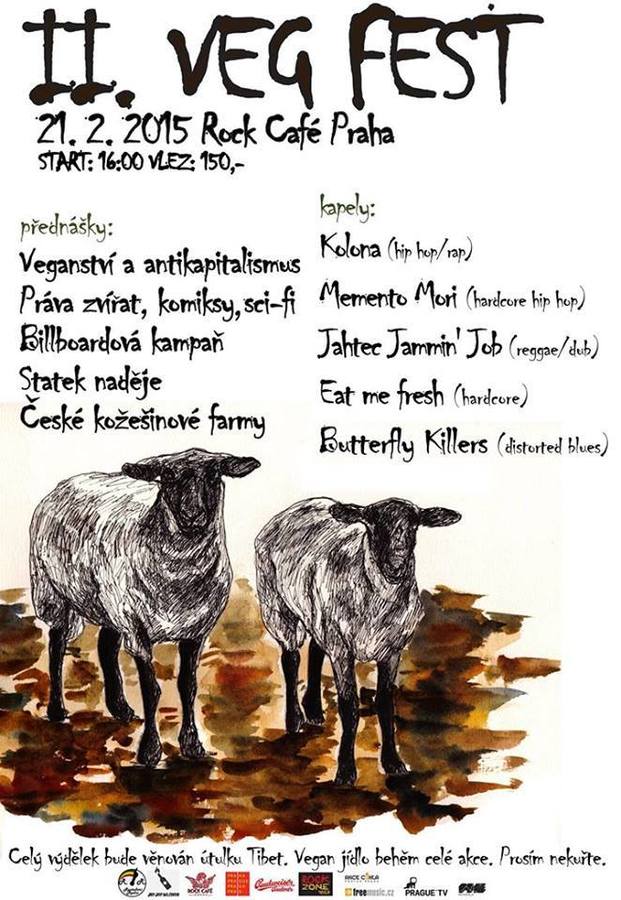 II. VEG FEST
21. 2. 2015 Rock Café Praha
START: 16:00 VLEZ: 150,-
přednášky:
Veganství a antikapitalismus
Práva zvířat, komiksy, sci-fi
Billboardová kampaň
Statek naděje
České kožešinové farmy
kapely:
Kolona (hip hop/rap)
Memento Mori (hardcore hip hop)
Jahtec Jammin' Job (reggae/dub)
Eat me fresh (hardcore)
Butterfly Killers (distorted blues)
Celý výdělek bude věnován útulku Tibet. Vegan jídlo během celé akce. Prosím nekuřte.
ROCK CAFE
PRAHA PRAGUE PRAGA PRAG
Budweiser Budvar
ROCK ZONE
AKCE CIKA
freemusic.cz
PRAGUE TV